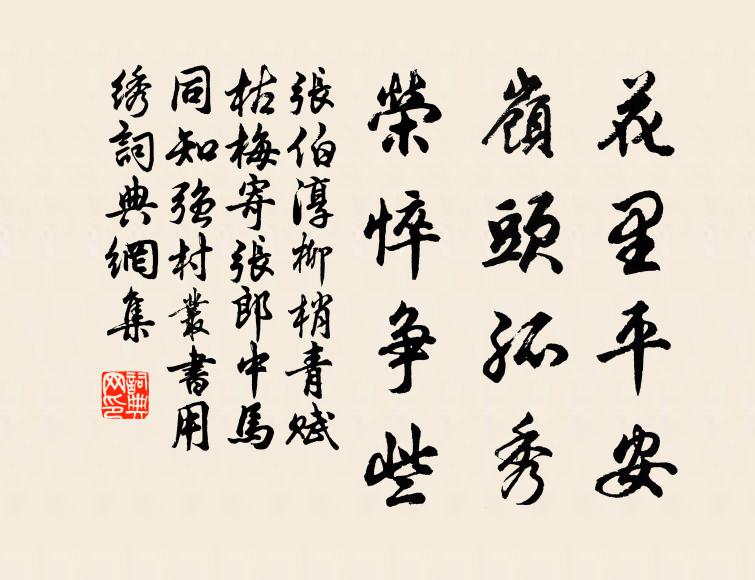 花里平安
嶺頭孤秀
榮悴争些
張伯淳柳梢青賦
枯梅寄張郎中馬
同知強村叢書用
綉詞典網集
詞典网印